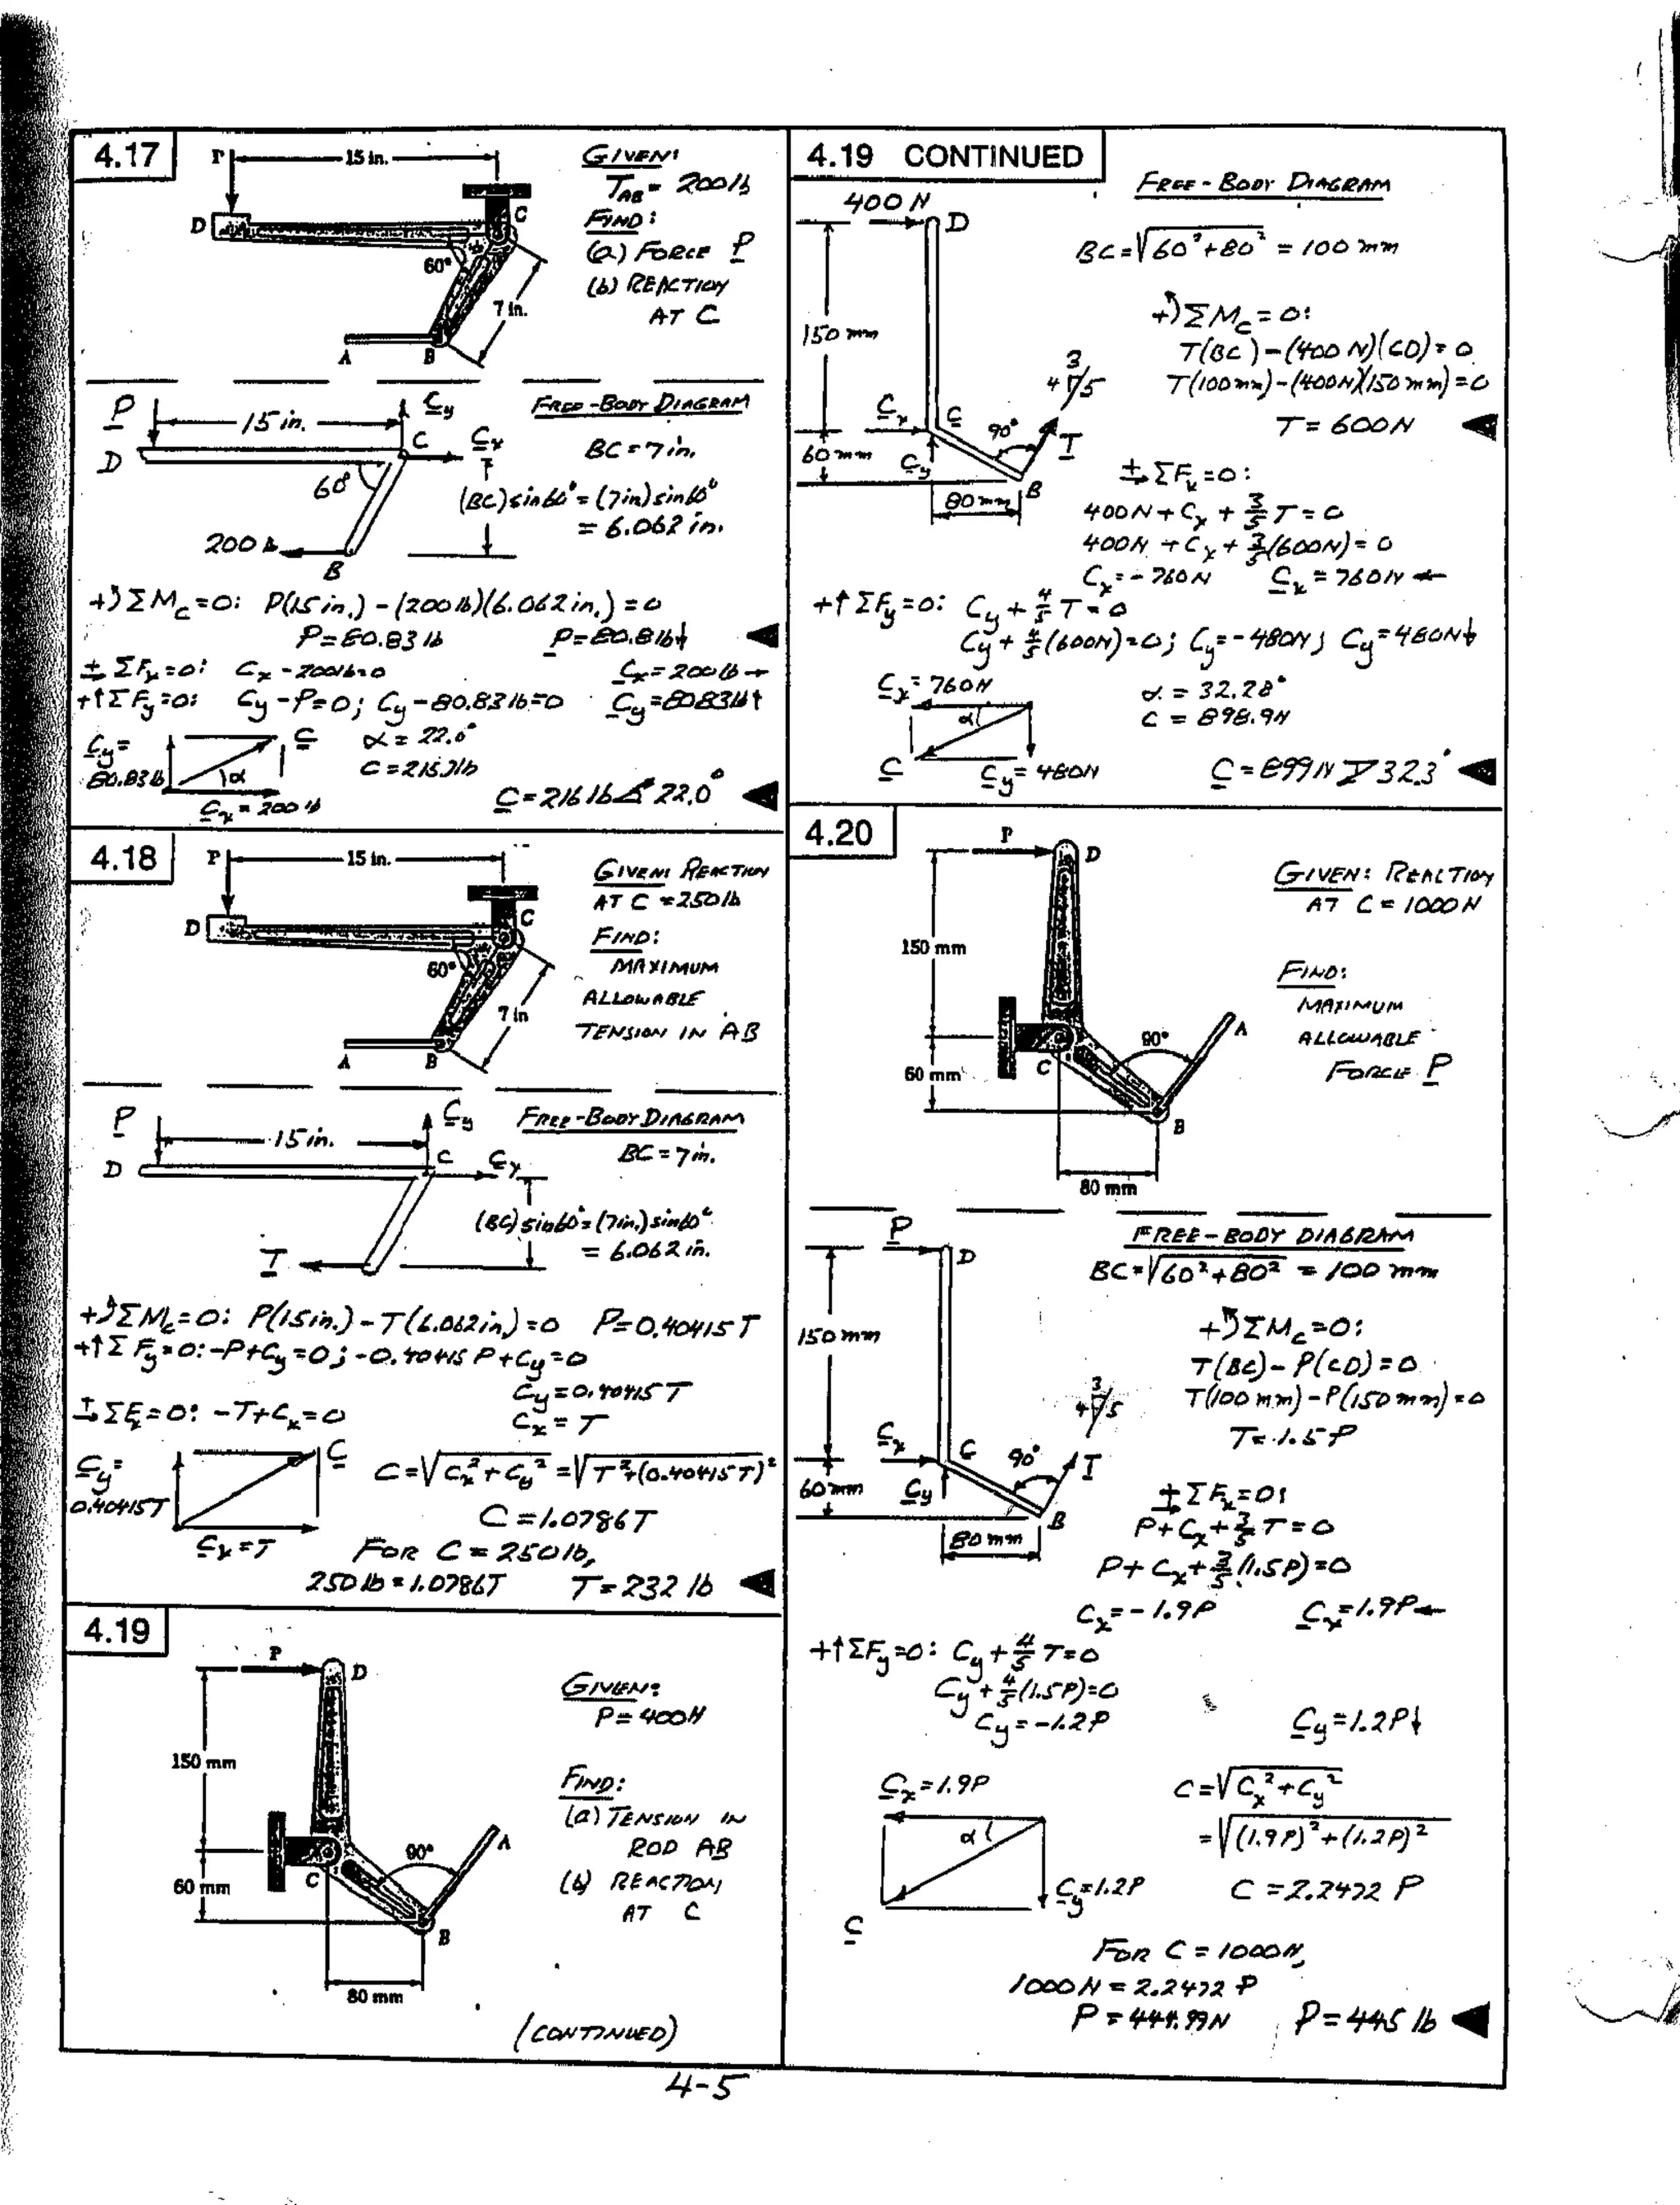 4.17
P 15 in.
D
C
60°
7 in.
A B
GIVEN:
T_AB = 200 lb
FIND:
(a) FORCE P
(b) REACTION
AT C
P 15 in. C_y
D C C_x
60°
200 lb
B
FREE-BODY DIAGRAM
BC = 7 in.
(BC) sin 60° = (7 in) sin 60°
= 6.062 in.
+) ΣM_C = 0: P(15 in.) - (200 lb)(6.062 in.) = 0
P = 80.83 lb P = 80.8 lb ↓
+→ ΣF_x = 0: C_x - 200 lb = 0 C_x = 200 lb →
+↑ ΣF_y = 0: C_y - P = 0; C_y - 80.83 lb = 0 C_y = 80.83 lb ↑
C_y =
80.83 lb
C
α
C_x = 200 lb
α = 22.0°
C = 215.7 lb
C = 216 lb ∡ 22.0°
4.18
P 15 in.
D
C
60°
7 in
A B
GIVEN: REACTION
AT C = 250 lb
FIND:
MAXIMUM
ALLOWABLE
TENSION IN AB
P 15 in. C_y
D C C_x
T
FREE-BODY DIAGRAM
BC = 7 in.
(BC) sin 60° = (7 in.) sin 60°
= 6.062 in.
+) ΣM_C = 0: P(15 in.) - T(6.062 in.) = 0 P = 0.40415 T
+↑ ΣF_y = 0: -P + C_y = 0; -0.40415 P + C_y = 0
C_y = 0.40415 T
+→ ΣF_x = 0: -T + C_x = 0
C_x = T
C_y =
0.40415 T
C
C_x = T
C = √(C_x² + C_y²) = √(T² + (0.40415 T)²)
C = 1.0786 T
FOR C = 250 lb,
250 lb = 1.0786 T T = 232 lb
4.19
P
D
150 mm
C
60 mm
90°
A
B
80 mm
GIVEN:
P = 400 N
FIND:
(a) TENSION IN
ROD AB
(b) REACTION
AT C
(CONTINUED)
4.19 CONTINUED
FREE-BODY DIAGRAM
400 N
D
150 mm
C_x C
C_y
60 mm
90°
T
B
80 mm
3
4 5
BC = √(60² + 80²) = 100 mm
+) ΣM_C = 0:
T(BC) - (400 N)(CD) = 0
T(100 mm) - (400 N)(150 mm) = 0
T = 600 N
+→ ΣF_x = 0:
400 N + C_x + 3/5 T = 0
400 N + C_x + 3/5 (600 N) = 0
C_x = -760 N C_x = 760 N ←
+↑ ΣF_y = 0: C_y + 4/5 T = 0
C_y + 4/5 (600 N) = 0; C_y = -480 N; C_y = 480 N ↓
C_x = 760 N
α
C
C_y = 480 N
α = 32.28°
C = 898.9 N
C = 899 N ⦫ 32.3°
4.20
P
D
150 mm
C
60 mm
90°
A
B
80 mm
GIVEN: REACTION
AT C = 1000 N
FIND:
MAXIMUM
ALLOWABLE
FORCE P
FREE-BODY DIAGRAM
P
D
150 mm
C_x C
C_y
60 mm
90°
T
B
80 mm
3
4 5
BC = √(60² + 80²) = 100 mm
+) ΣM_C = 0:
T(BC) - P(CD) = 0
T(100 mm) - P(150 mm) = 0
T = 1.5 P
+→ ΣF_x = 0:
P + C_x + 3/5 T = 0
P + C_x + 3/5 (1.5 P) = 0
C_x = -1.9 P C_x = 1.9 P ←
+↑ ΣF_y = 0: C_y + 4/5 T = 0
C_y + 4/5 (1.5 P) = 0
C_y = -1.2 P C_y = 1.2 P ↓
C_x = 1.9 P
α
C_y = 1.2 P
C
C = √(C_x² + C_y²)
= √((1.9 P)² + (1.2 P)²)
C = 2.2472 P
FOR C = 1000 N,
1000 N = 2.2472 P
P = 444.99 N P = 445 lb
4-5